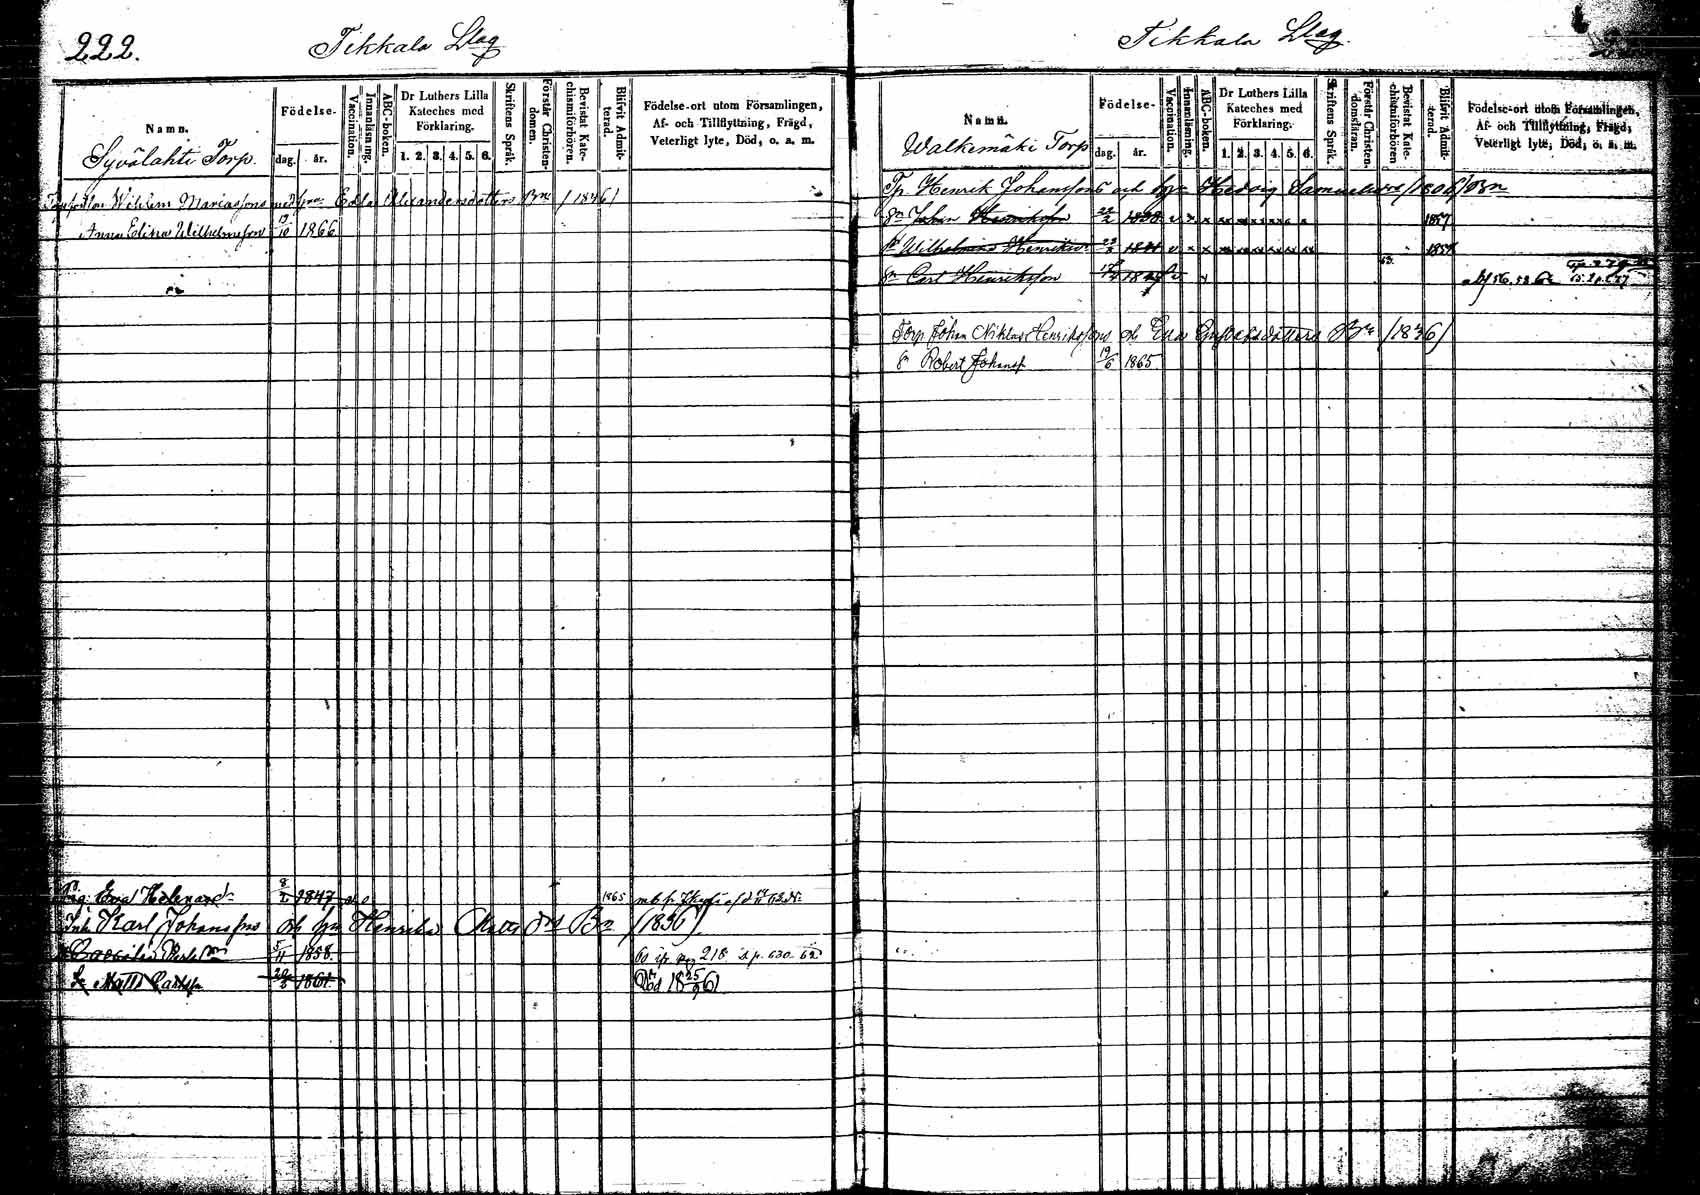 222.
Tikkala Llag
Namn.
Födelse-
dag.
år.
Vaccination.
Innanläsning.
ABC-boken.
Dr Luthers Lilla Kateches med Förklaring.
1. 2. 3. 4. 5. 6.
Skriftens Språk.
Förstår Christendomen.
Bevistat Katechismiförhören.
Blifvit Admitterad.
Födelse-ort utom Församlingen,
Af- och Tillflyttning, Frägd,
Veterligt lyte, Död, o. a. m.
Syvälahti Torp.
Wilhlm Mariassons med Edla Alexandersdotters Bn /1846/
Anna Edina Wilhelmsson 19/10 1866
Eva Helena 8/2 1847 1865
Karl Johanssons och hu Henrika Matts drs Bn (1856)
5/11 1858. 218 p. 630
Matts Carlss 1861 Död 18 25/9 61
Tikkala Llag.
Namn.
Födelse-
dag.
år.
Vaccination.
Innanläsning.
ABC-boken.
Dr Luthers Lilla Kateches med Förklaring.
1. 2. 3. 4. 5. 6.
Skriftens Språk.
Förstår Christendomsläran.
Bevistat Katechismiförhören
Blifvit Admitterad.
Födelse-ort utom Församlingen,
Af- och Tillflyttning, Frägd,
Veterligt lyte, Död, o. a. m.
Walkemäki Torp
Tp. Henrik Johanssons och hu Hedvig /1806/ Bn
Sn Johan Henriksson 22/2 1838 v x x x x x x x x x 1857
Wilhelmina Henriksd 1841 v x x x x x x x x x
Sn Carl Henriksson x
Torp Johan Niklas Henrikssons och Eva Gustafsdotters Bn /1836/
Sn Robert Johanss 19/6 1865